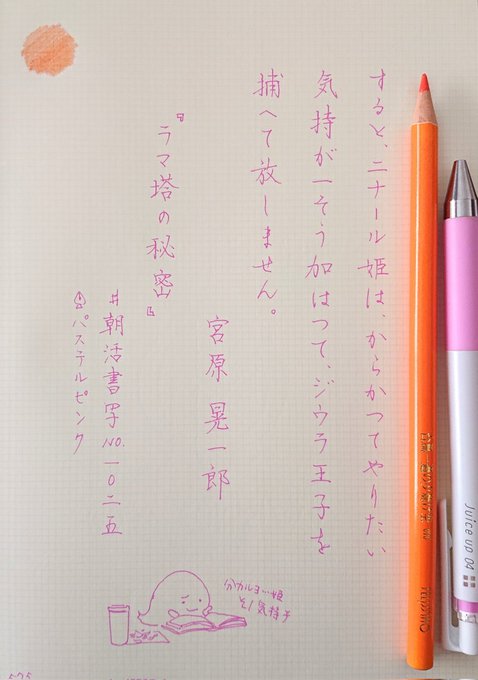 すると、ニナール姫は、からかつてやりたい
気持が一そう加はつて、ジウラ王子を
捕へて放しません。
『ラマ塔の秘密』
宮原 晃一郎
#朝活書写 NO.一〇二五
パステルピンク
分カルヨ…姫
ソノ気持チ
Juice up 04